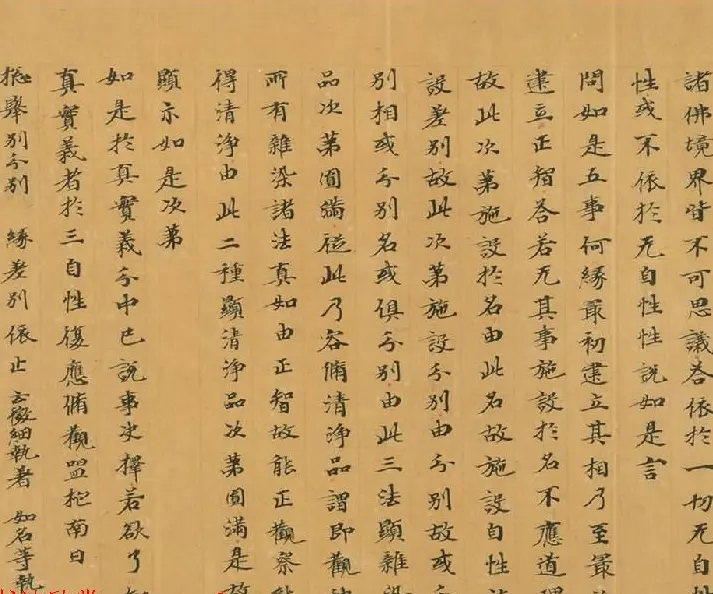 諸佛境界皆不可思議答依於一切无自性
性或不依於无自性性說如是言
問如是五事何緣㝡初建立其相乃至㝡
建立正智答若无其事施設於名不應道理
故此次第施設於名由此名故施設自性
設差別故此次第施設分別由分別故或
別相或分別名或俱分別由此三法顯雜染
品次第圓滿從此乃容脩清淨品謂即觀
所有雜染諸法真如由正智故能正觀察
得清淨由此二種顯清淨品次第圓滿是故
顯示如是次第
如是於真實義分中已說事决擇若欲了
真實義者於三自性復應脩觀嗢柁南曰
揔舉別分別 緣差別依止 微細執著 如名等執